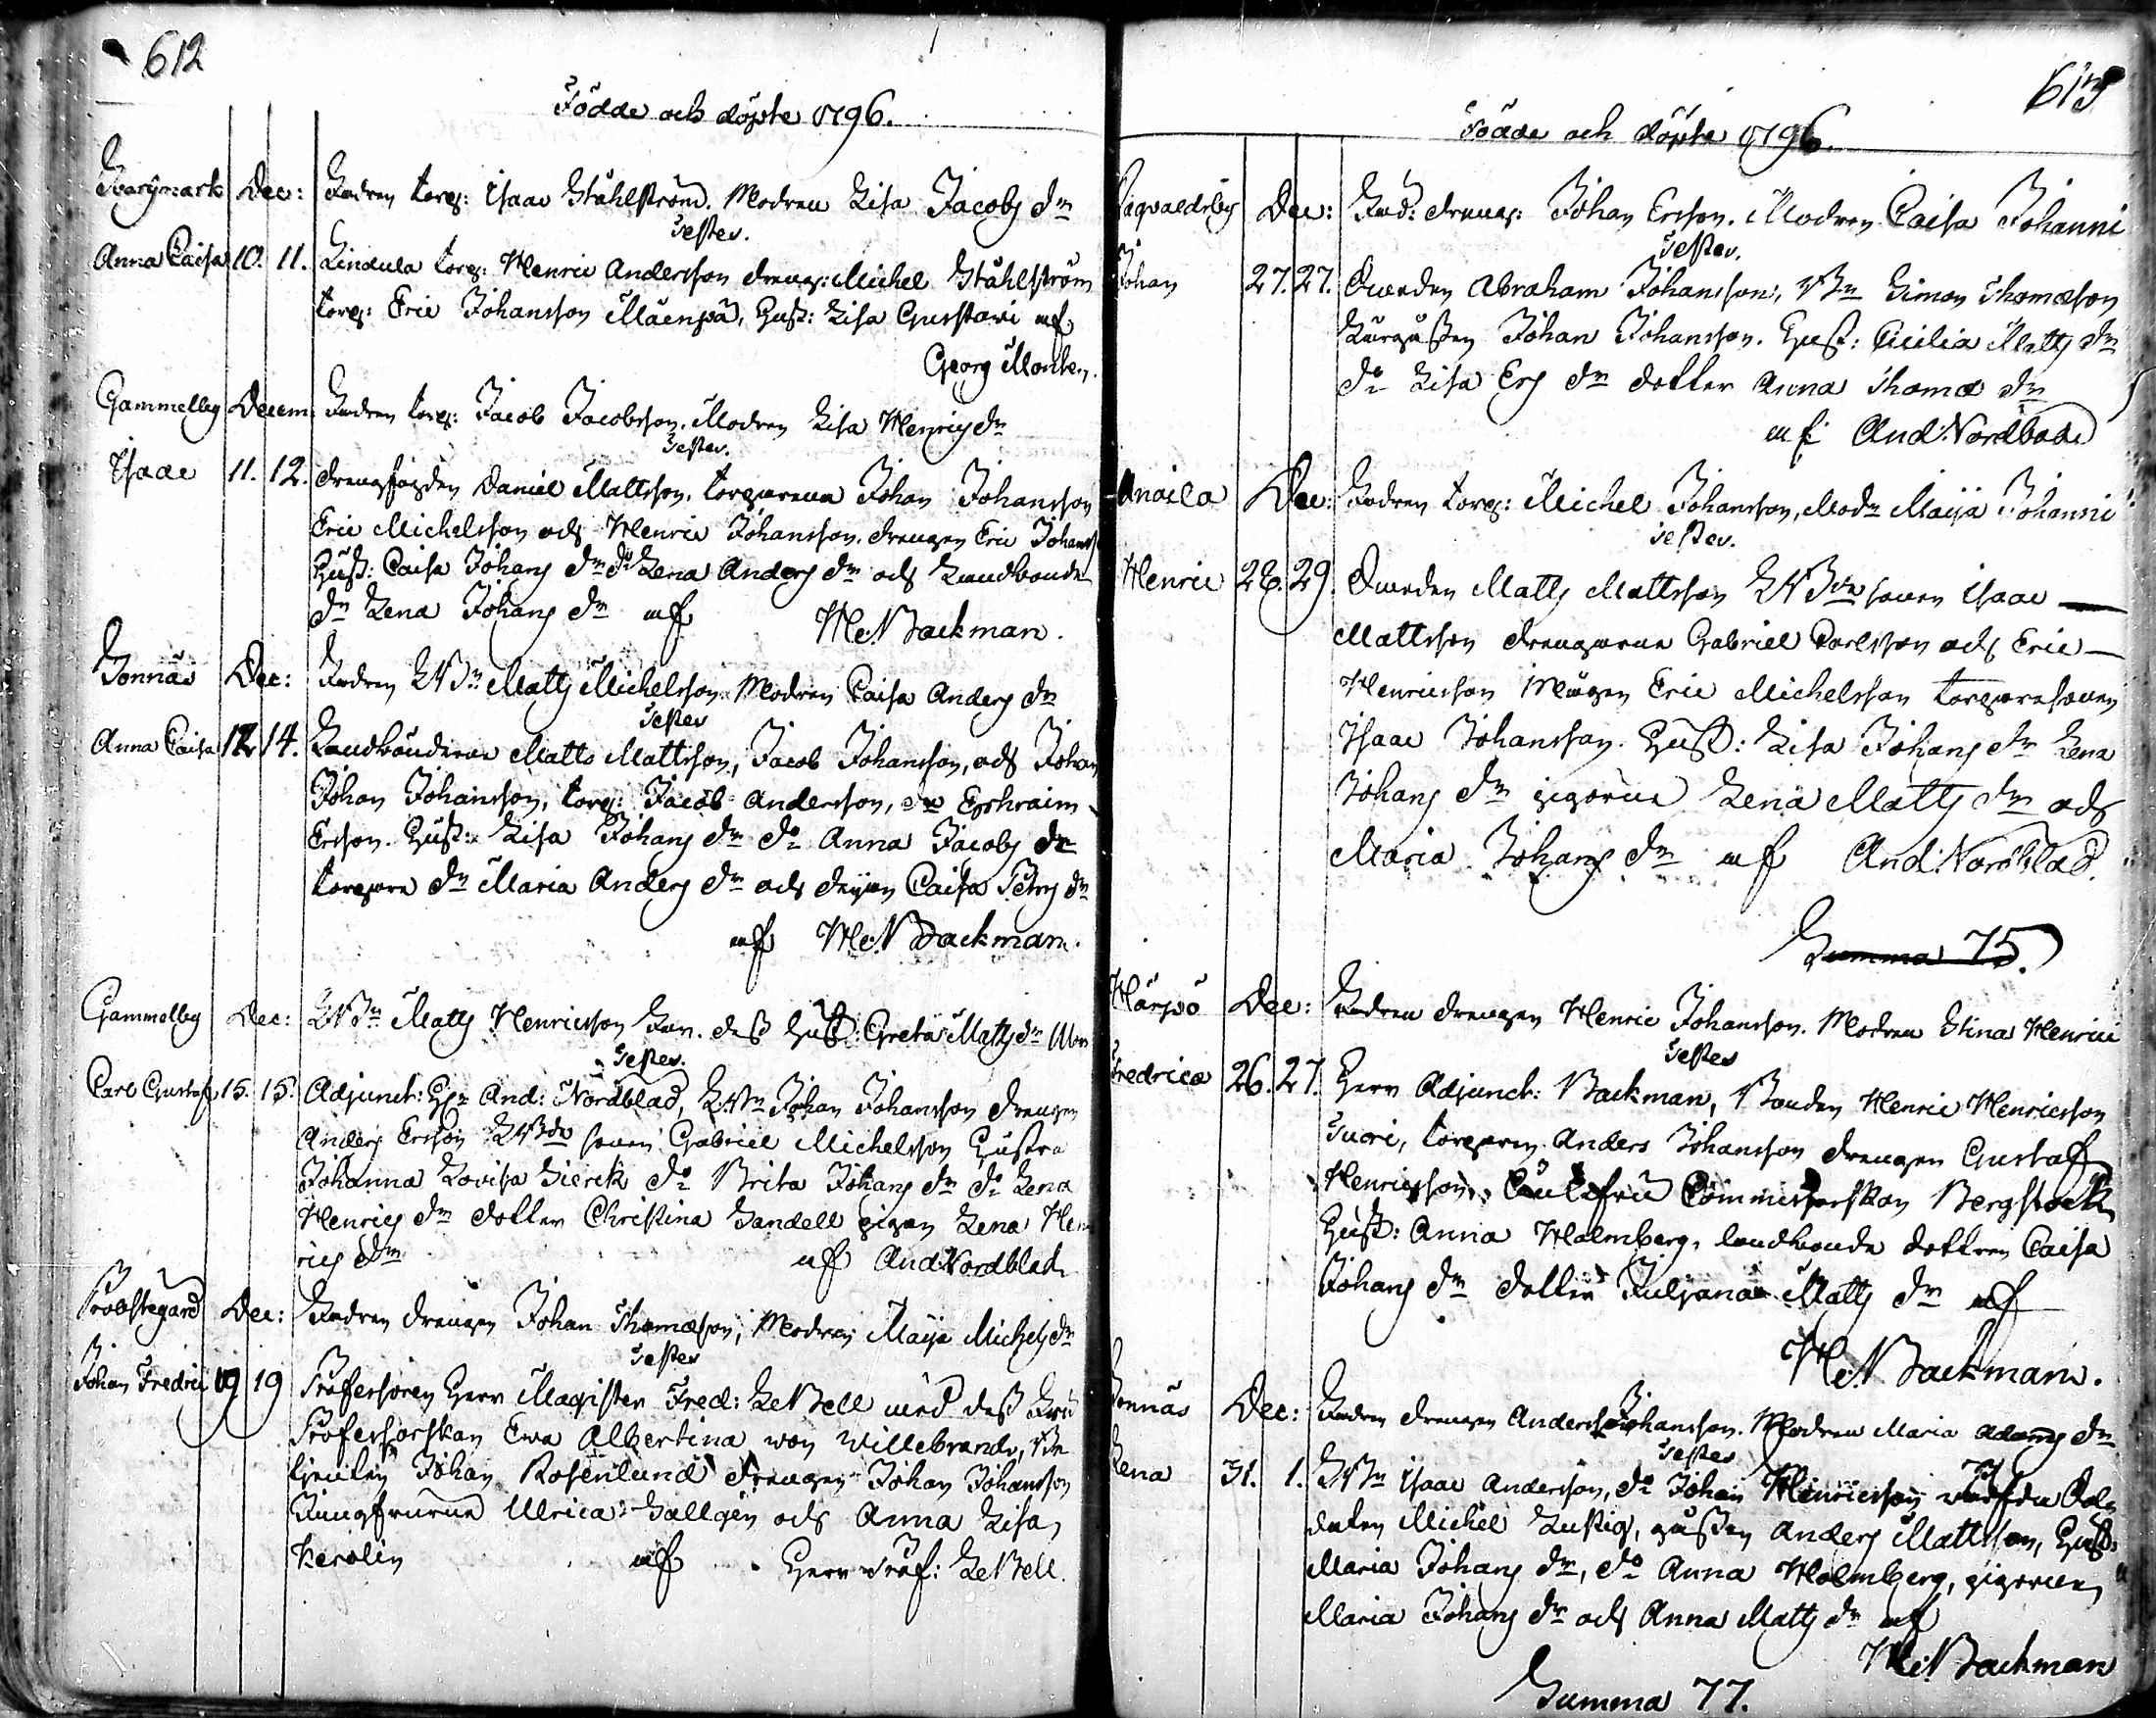 612
Födde och döpte 1796.
Svartmark Dec: Fadren torp: Isaac Ståhlström. Modren Lisa Jacobs dr
Testes.
Anna Caisa 10. 11. Lindula torp: Henric Andersson drengs: Michel Ståhlström
torp: Eric Johansson Mäenpä, Hust: Lisa Gustavi af
Georg Monten.
Gammelby Decem: Fadren torp: Jacob Jacobsson. Modren Lisa Henrics dr
Testes.
Isaac 11. 12. drengfogden Daniel Mattsson, torparena Johan Johansson
Eric Michelsson och Henric Johansson. drengen Eric Johanss
Hust: Caisa Johans dr do Lena Anders dr och Landbonde
dr Lena Johans dr af H: N Backman.
Sonnäs Dec: Fadren LNBn Matts Michelsson. Modren Caisa Anders dr
Testes
Anna Caisa 12 14. Landbönderne Matts Mattsson, Jacob Johansson, och Johan
Johan Johansson, torp: Jacob Andersson, do Ephraim
Ersson. Hust: Lisa Johans dr do Anna Jacobs dr
torpare dr Maria Anders dr och Caisa Pehrs dr
af H: N Backman.
Gammelby Dec: LNBn Matts Henricsson Far. dess Hust: Greta Matts dr Mor
Testes.
Carl Gustaf 15. 15. Adjunct: Hr And: Nordblad, LNBn Johan Johansson drengen
Anders Ersson LNBde sonen Gabriel Michelsson Hustra
Johanna Lovisa Sierck do Brita Johans dr do Lena
Henrics dr dotter Christina Sandell pigan Lena Hen
rics dr af And: Nordblad
Probstegård Dec: Fadren drengen Johan Thomasson, Modren Maija Michels dr
Testes
Johan Fredric 19 19 Professoren Herr Magister Fred: LeBell med dess Fru
Professorskan Ewa Albertina von Willebrand,
Johan Rosenlund drengen Johan Johansson
Jungfrurna Ulrica Hallgén och Anna Lisa
Kerolin af Herr Prof: LeBell.
613
Födde och döpte 1796.
Dec: Fad: drengs: Johan Ersson. Modren Caisa Johanni
Testes.
Johan 27. 27. Abraham Johansson, Bn Simon Thomasson
Johan Johansson. Hust: Cicilia Matts dr
do Lisa Ers dr dotter Anna Thomæ dr
af And: Nordblad
Anaila Dec: Fadren torp: Michel Johansson, Modn Maija Johanni
Testes.
Henric 28. 29. Matts Mattsson LNBde sonen Isaac
Mattsson drengarne Gabriel Carlsson och Eric
Henricsson Mågen Eric Michelsson torparesonen
Isaac Johansson. Hust: Lisa Johans dr Lena
Johans dr pigorna Lena Matts dr och
Maria Johans dr af And: Nordblad.
Summa 75.
Härpö Dec: Fadren drengen Henric Johansson. Modren Stina Henrici
Testes
Fredrica 26. 27. Herr Adjunct: Backman, Bonden Henric Henricsson
Suori, torparen Anders Johansson drengen Gustaf
Henricsson, Commissorskan Bergstock
Hust: Anna Holmberg, landbonde dottren Caisa
Johans dr dotter Juljana Matts dr af
H: N Backman.
Sonnäs Dec: Fadren drengen Anders Johansson. Modren Maria Adams dr
Testes
Lena 31. 1. LNBn Isaac Andersson, do Johan Henricsson
Michel Lustig, gosten Anders Mattsson, Hust:
Maria Johans dr, do Anna Holmberg, pigorna
Maria Johans dr och Anna Matts dr af
H: N Backman
Summa 77.